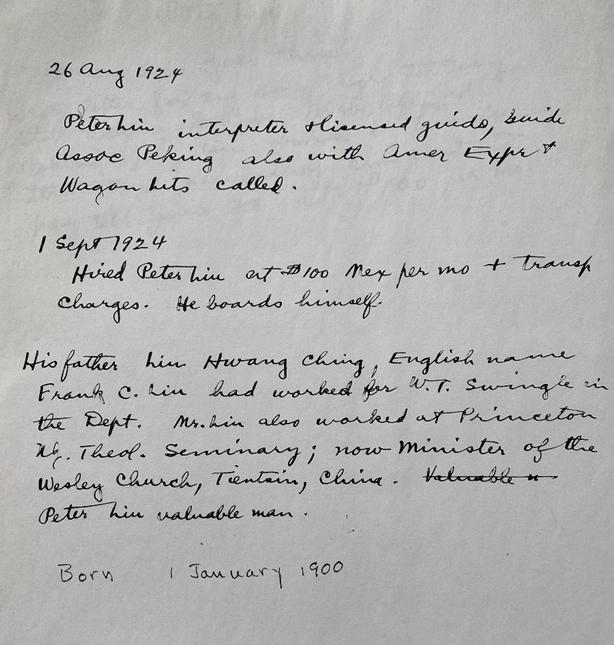 26 Aug 1924
Peter Liu interpreter + lisensed guide, Guide
Assoc Peking also with Amer Expr +
Wagon Lits called.
1 Sept 1924
Hired Peter Liu at $100 Mex per mo + transp
Charges. He boards himself.
His father Liu Hwang Ching, English name
Frank C. Liu had worked for W.T. Swingle in
the Dept. Mr. Liu also worked at Princeton
Theol. Seminary; now Minister of the
Wesley Church, Tientsin, China. Valuable
Peter Liu valuable man.
Born 1 January 1900